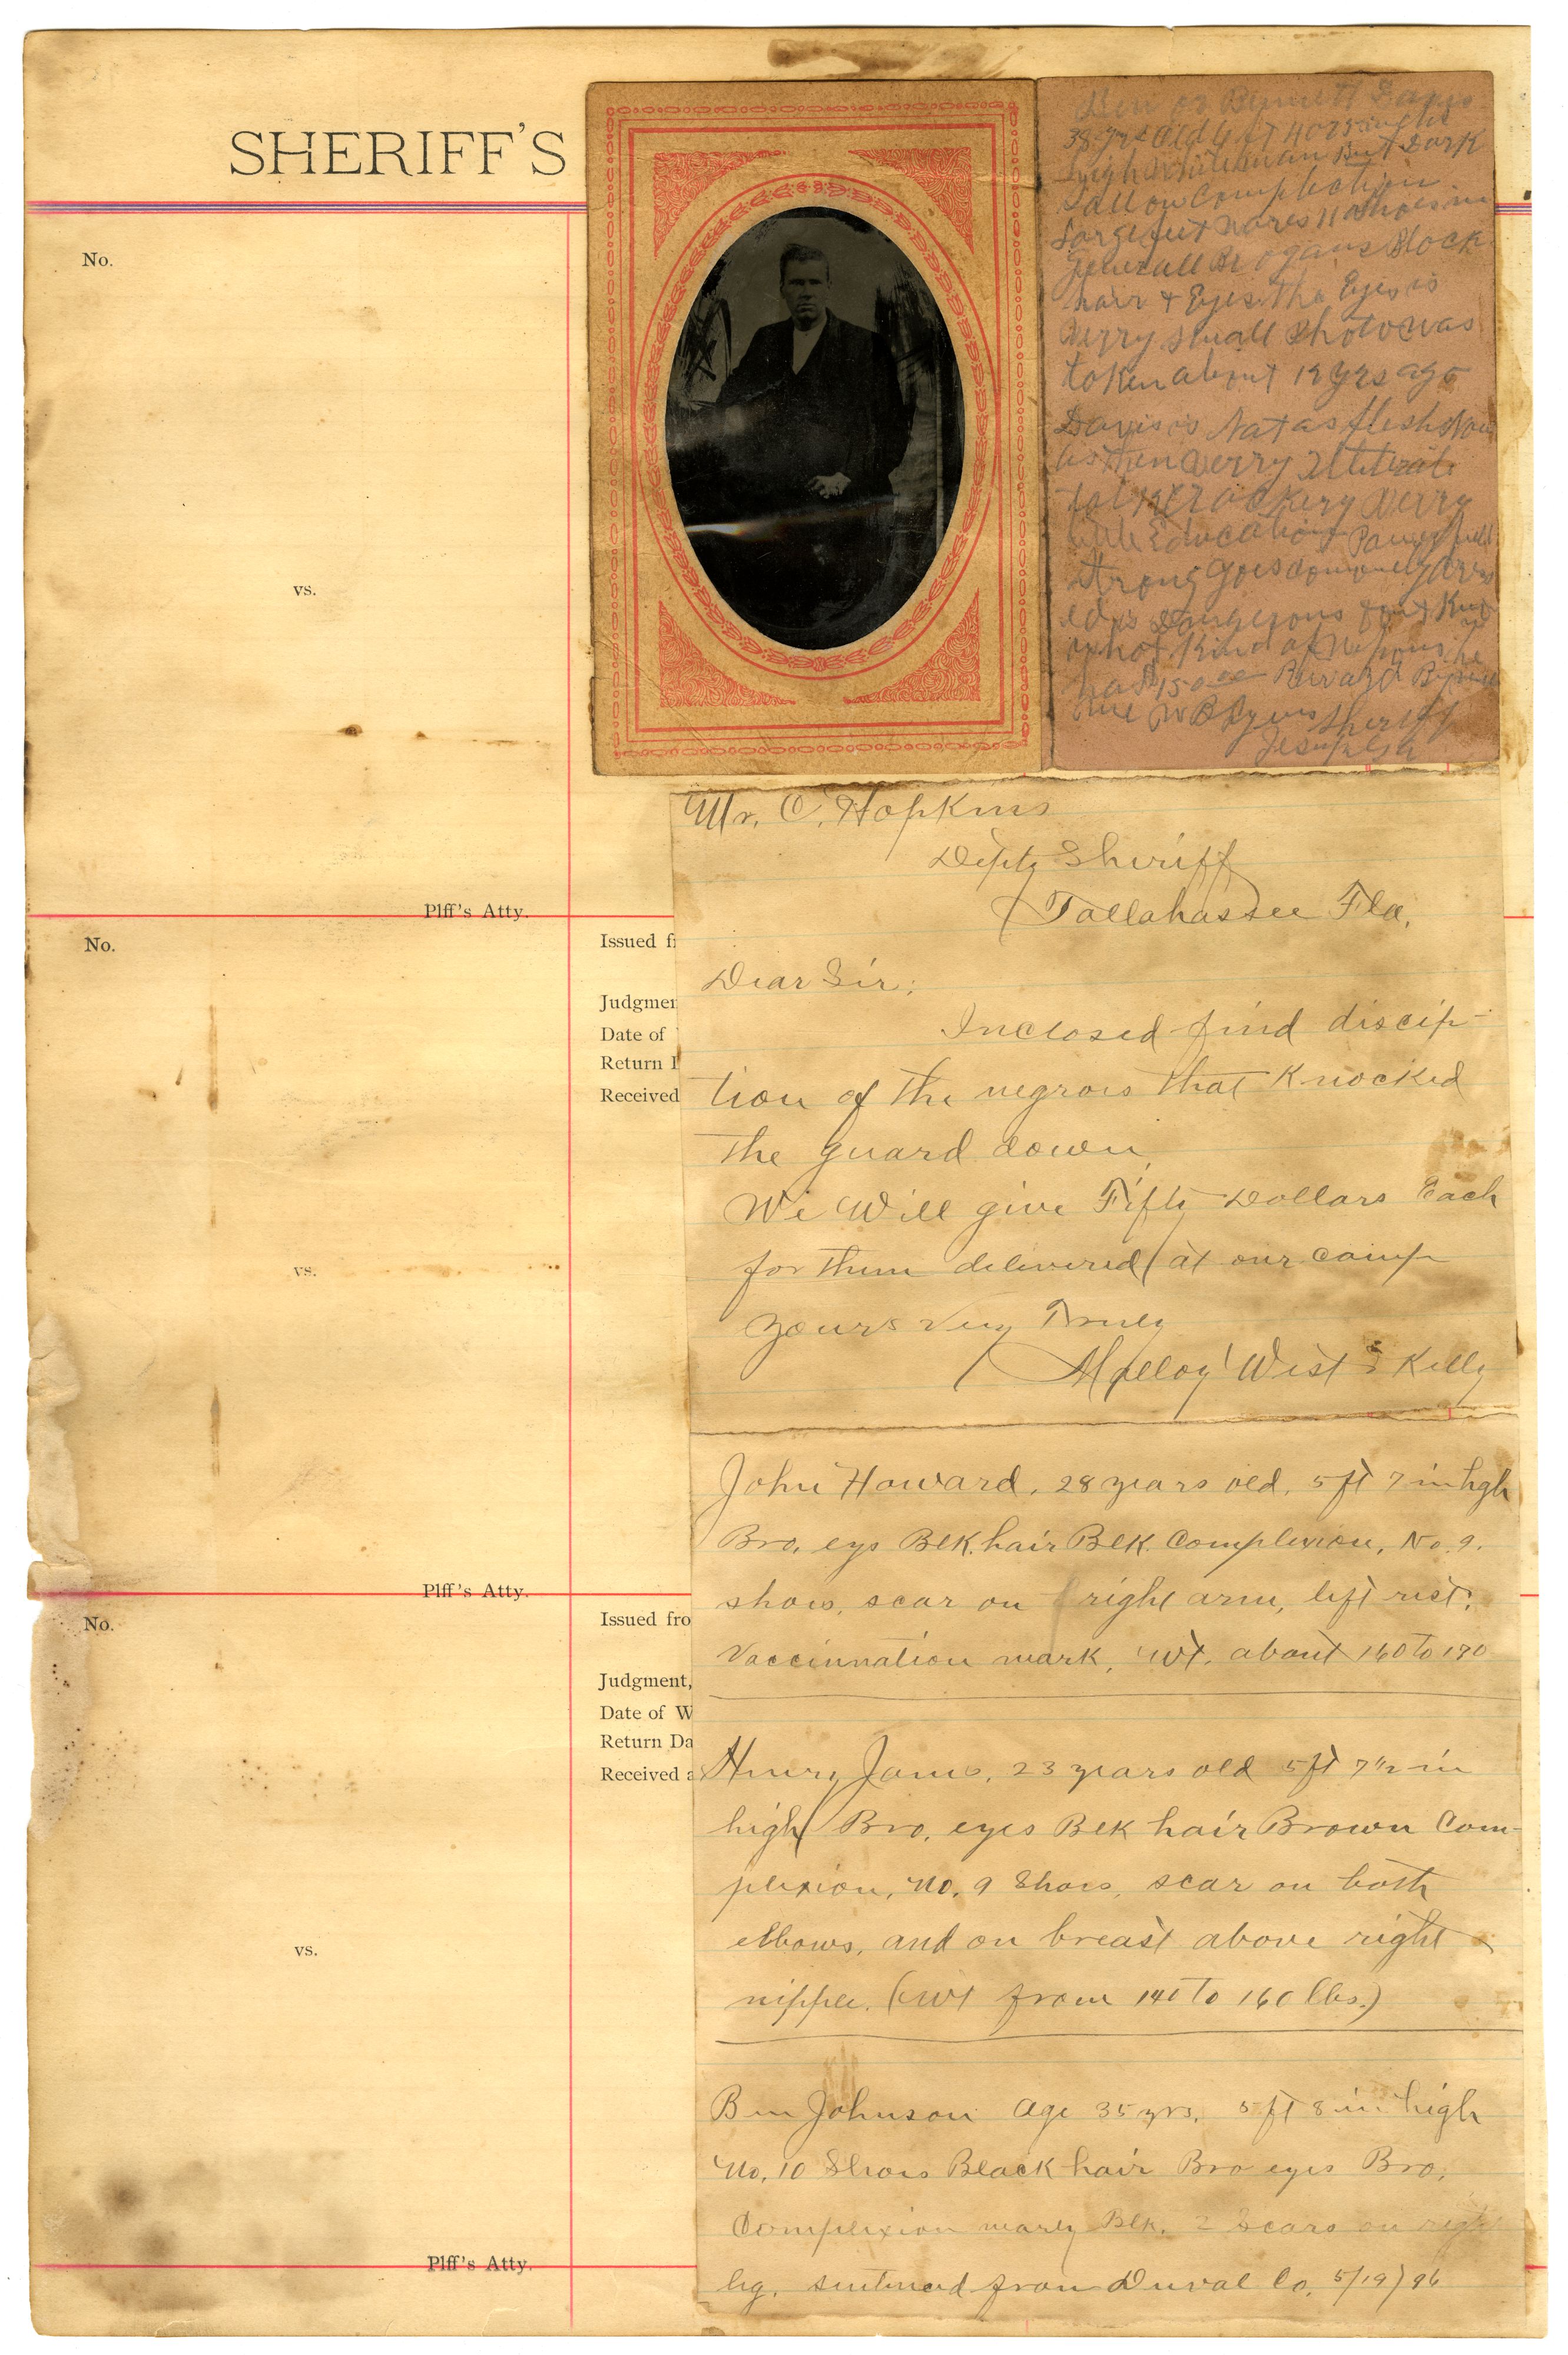 SHERIFF'S
No.
vs.
Plff's Atty.
38 yrs old 6 ft
high White man But Dark
Sallow Complection
Large feet Wares 11 Shoes in
Generall Brogans Black
hair & Eyes. The Eyes is
Verry Small Photo was
taken about 12 yrs ago
Davis is Not as flesh Now
as then Verry Illiterate
Verry
little Education Powerfull
Strong Goes
ed is Dangerous
what Kind of he
has $150.00 Reward
Sheriff
Jesup Ga
Mr. C. Hopkins
Depty Sheriff
Tallahassee Fla.
Dear Sir:
Inclosed find discip-
tion of the negroes that Knocked
the guard down
We Will give Fifty Dollars Each
for them delivered at our camp
Yours Very Truly
Malloy West & Kelly
No.
vs.
Plff's Atty.
Issued f
Judgmen
Date of
Return
Received
John Howard, 28 years old, 5 ft 7 in high
Bro, eys Blk. hair Blk. Complexion, No. 9.
shoes, scar on right arm, left rist.
Vaccinnation mark, Wt. about 160 to 170
No.
vs.
Plff's Atty.
Issued fro
Judgment,
Date of W
Return Da
Received a
Henry James, 23 years old 5 ft 7½ in
high Bro, eyes Blk hair Brown Com-
plexion, No. 9 Shoes, scar on both
elbows, and on breast above right
nipple. (Wt from 140 to 160 lbs.)
Ben Johnson Age 35 yrs. 5 ft 8 in high
No. 10 Shoes Black hair Bro eyes Bro.
Complexion nearly Blk. 2 Scars on right
leg. sentenced from Duval Co. 5/19/96